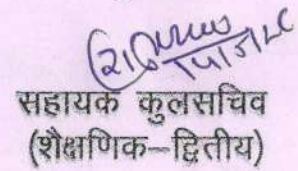 सहायक कुलसचिव
(शैक्षणिक–द्वितीय)